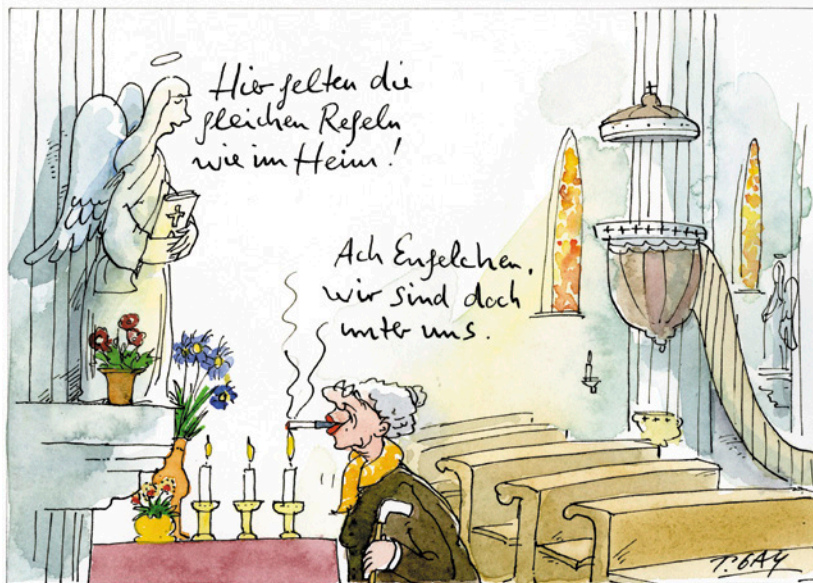 Hier gelten die
gleichen Regeln
wie im Heim!
Ach Engelchen,
wir sind doch
unter uns.
P. GAY